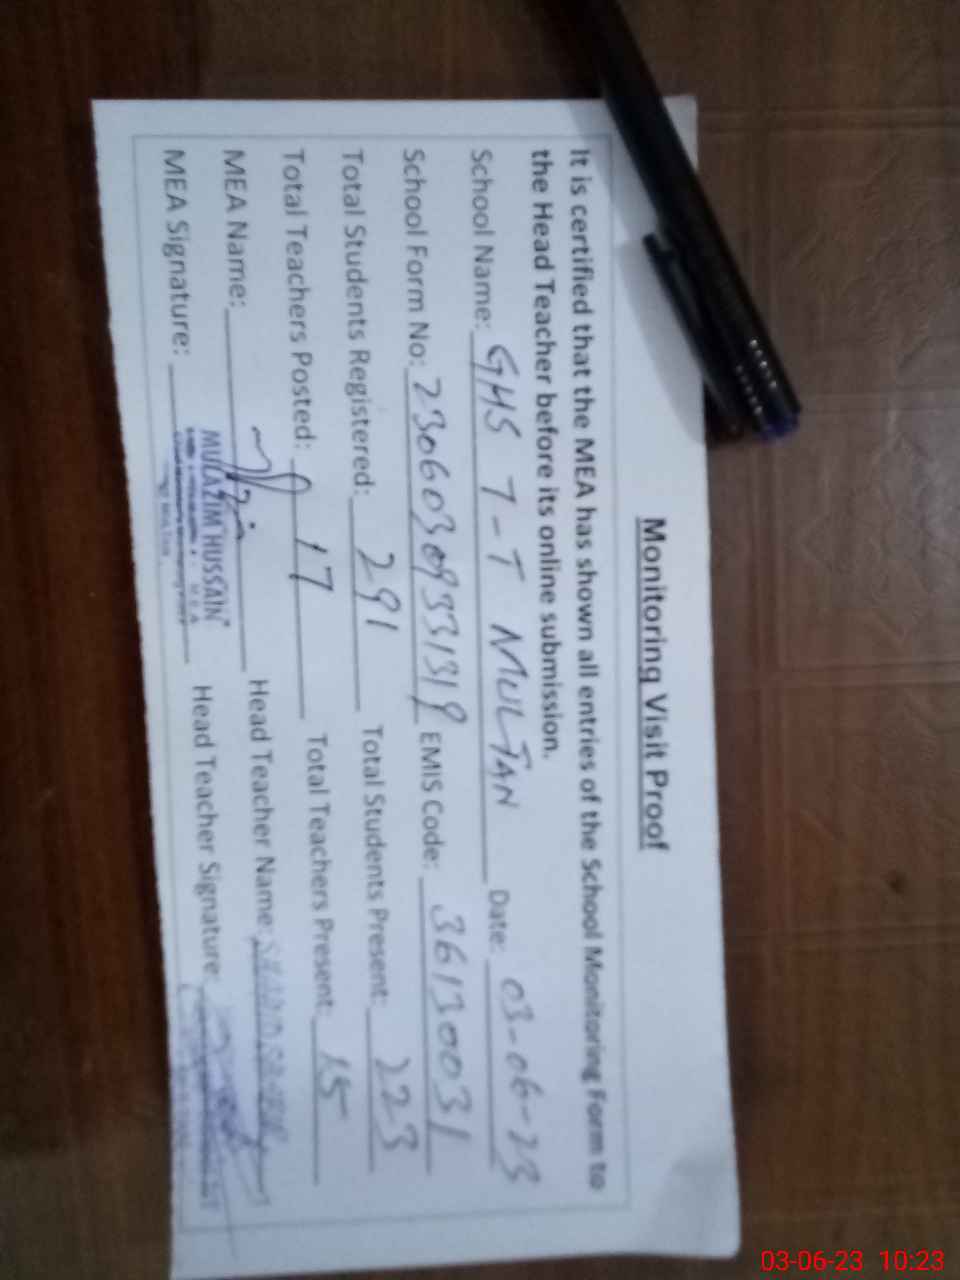 Monitoring Visit Proof
It is certified that the MEA has shown all entries of the School Monitoring Form to
the Head Teacher before its online submission.
School Name: GHS T-T MULTAN Date: 03-06-23
School Form No: 2306030933319 EMIS Code: 36130031
Total Students Registered: 291 Total Students Present: 223
Total Teachers Posted: 17 Total Teachers Present: 15
MEA Name: Head Teacher Name:
MULAZIM HUSSAIN
M.E.A
MEA Signature: Head Teacher Signature:
03-06-23 10:23